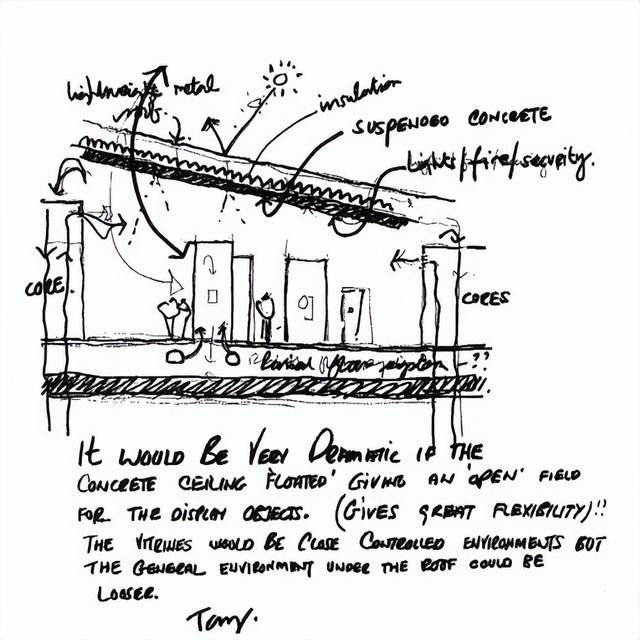 lightweight metal
roof.
insulation
SUSPENDED CONCRETE
Lights/fire/security.
CORE.
CORES
??
!!.
IT WOULD BE VERY DRAMATIC IF THE
CONCRETE CEILING 'FLOATED' GIVING AN 'OPEN' FIELD
FOR THE DISPLAY OBJECTS. (GIVES GREAT FLEXIBILITY)!!
THE VITRINES WOULD BE CLOSE CONTROLLED ENVIRONMENTS BUT
THE GENERAL ENVIRONMENT UNDER THE ROOF COULD BE
LOOSER.
Tony.